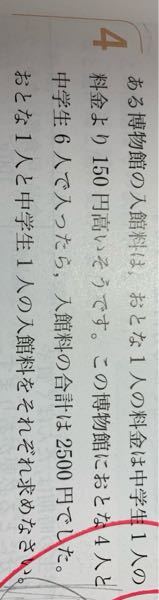 4
ある博物館の入館料は，おとな1人の料金は中学生1人の
料金より150円高いそうです。この博物館におとな4人と
中学生6人で入ったら，入館料の合計は2500円でした。
おとな1人と中学生1人の入館料をそれぞれ求めなさい。